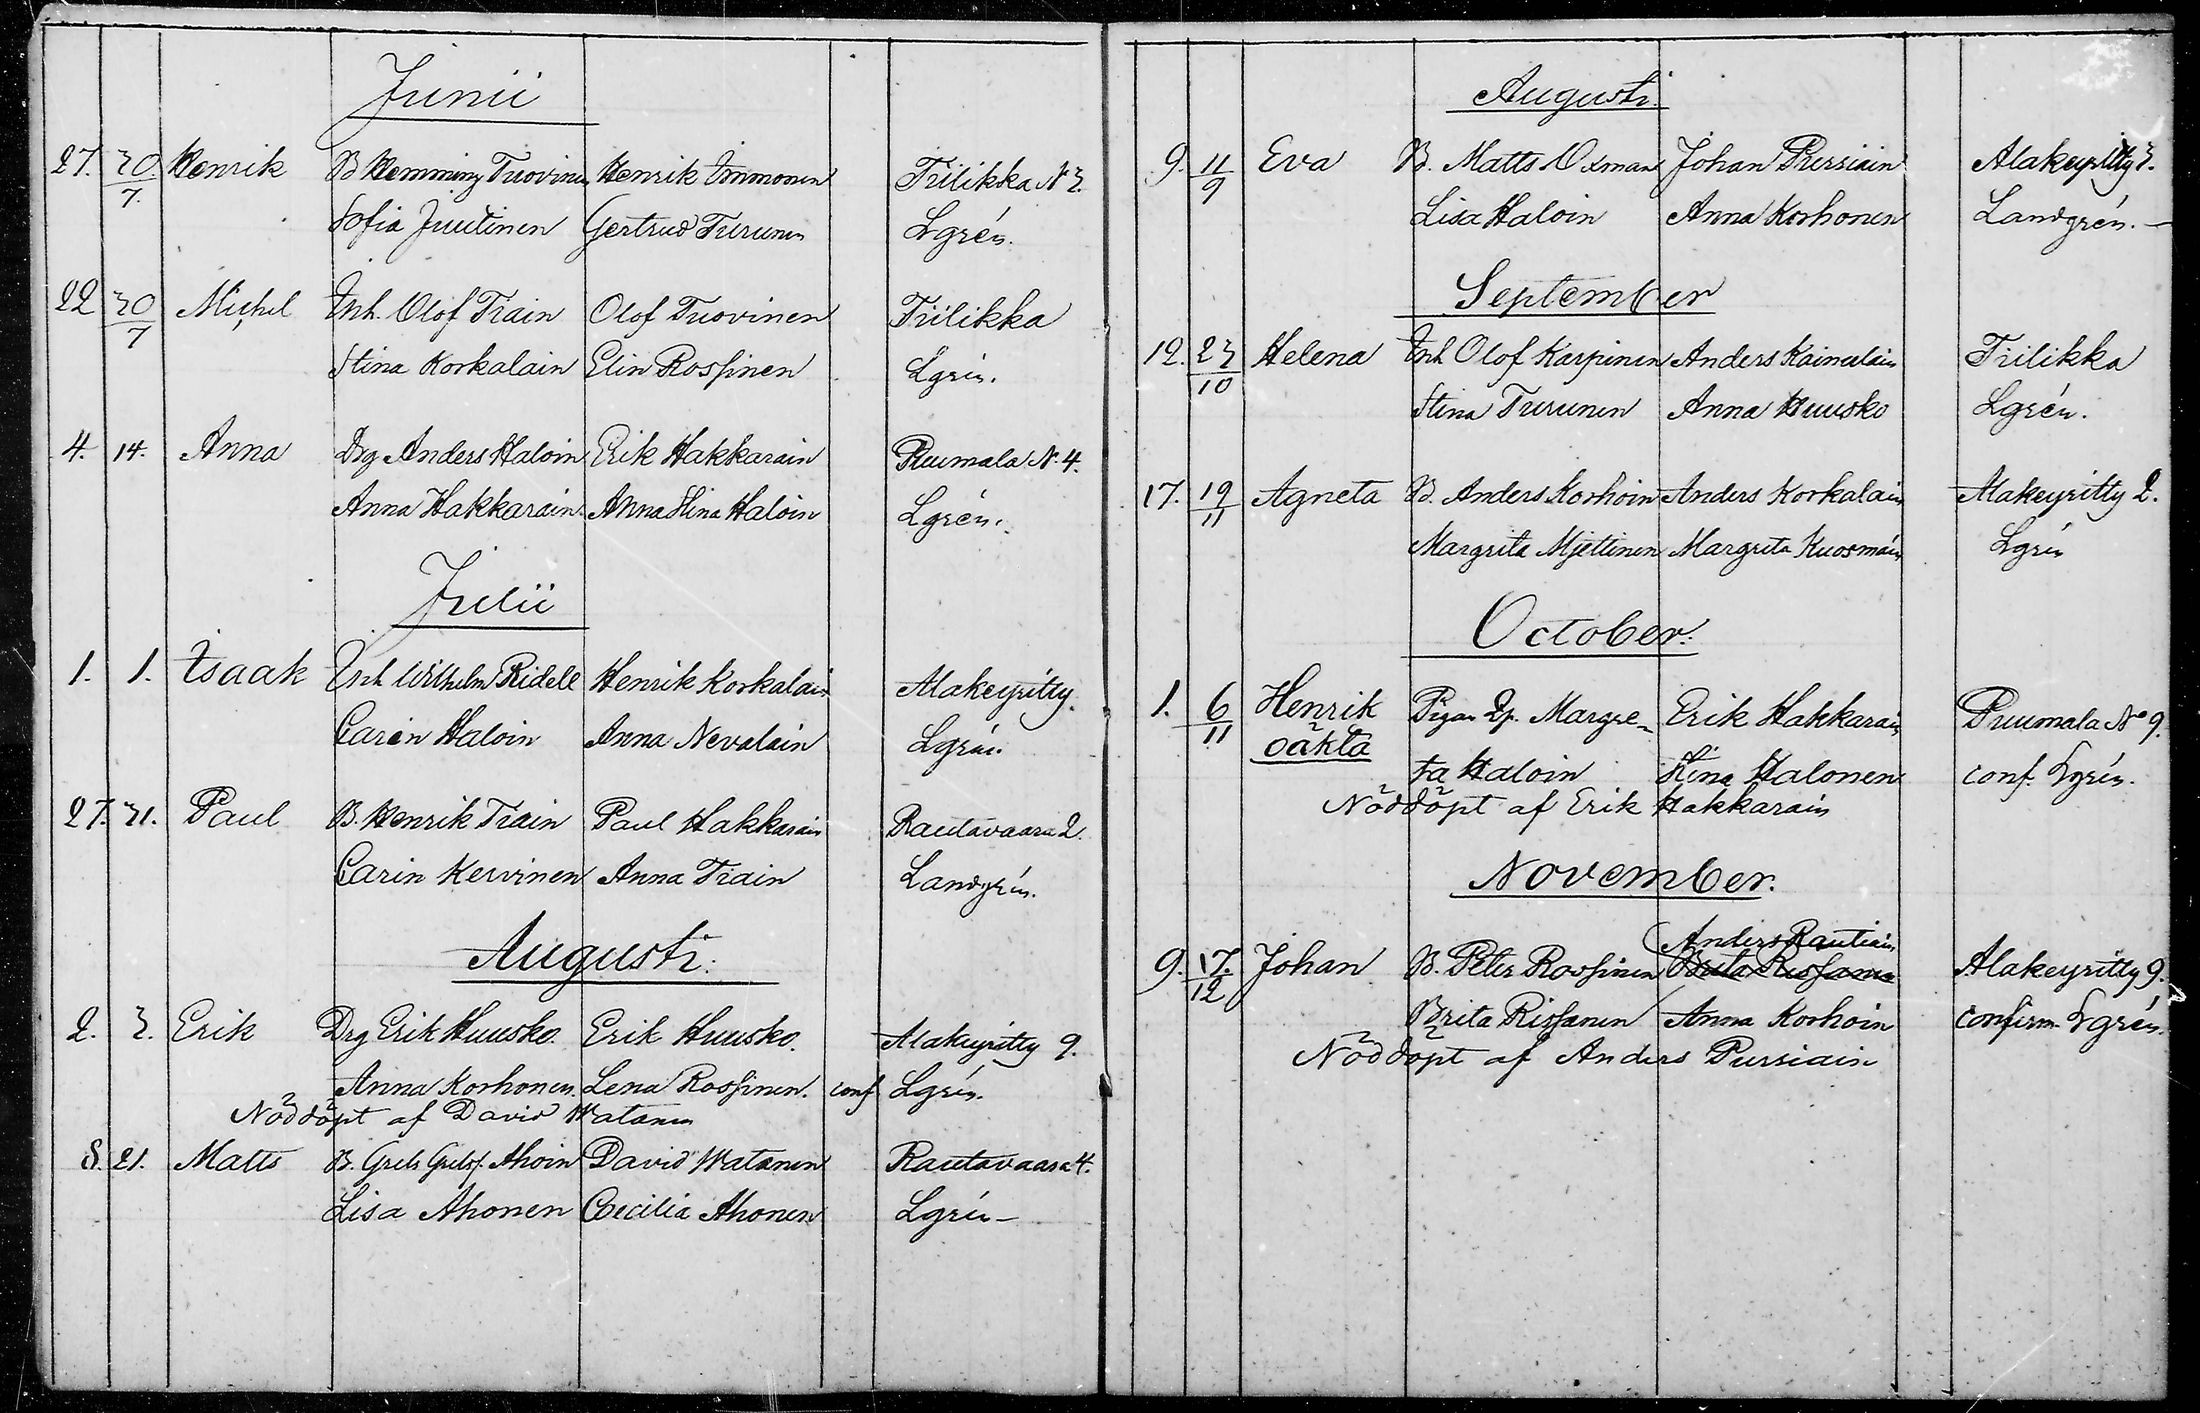 Junii
27. 30/7. Henrik B Hemming Tuovinen Henrik Immonen Tiilikka No 3.
Sofia Juutinen Gertrud Turunen Lgrén.
22 30/7 Michel Inh. Olof Train Olof Tuovinen Tiilikka
Stina Korkalain Elin Rossinen Lgrén.
4. 14. Anna Drg Anders Haloin Erik Hakkarain Puumala No 4.
Anna Hakkarain Anna Stina Haloin Lgrén.
Julii
1. 1. Isaak Inh Wilhelm Ridell Henrik Korkalain Alakeyritty.
Carin Haloin Anna Nevalain Lgrén.
27. 31. Paul B. Henrik Train Paul Hakkarain Rautavaara 2.
Carin Kervinen Anna Train Landgrén.
Augusti.
2. 3. Erik Drg Erik Huusko. Erik Huusko. Alakeyritty 9.
Anna Korhonen. Lena Rossinen. conf Lgrén.
Nöddöpt af David Watanen
8. 21. Matts B. Grels Grelsf. Ahoin David Watanen Rautavaara 4.
Lisa Ahonen Cecilia Ahonen Lgrén
Augusti.
9. 11/9 Eva B. Matts Oxman Johan Pursiain Alakeyritty 3.
Lisa Haloin Anna Korhonen Landgrén.
September
12. 23/10 Helena Inh Olof Karpinen Anders Kainulain Tiilikka
Stina Turunen Anna Huusko Lgrén.
17. 19/11 Agneta B. Anders Korhoin Anders Korkalain Alakeyritty 2.
Margrita Mjettinen Margreta Kuosmain Lgrén
October.
1. 6/11 Henrik Pigan Margre- Erik Hakkarain Puumala No 9.
oäkta ta Haloin Stina Halonen conf. Lgrén.
Nöddöpt af Erik Hakkarain
November.
Anders Rautiain
9. 17./12 Johan B. Peter Rossinen Brita Rissanen Alakeyritty 9.
Brita Rissanen Anna Korhoin confirm Lgrén.
Nöddöpt af Anders Pursiain